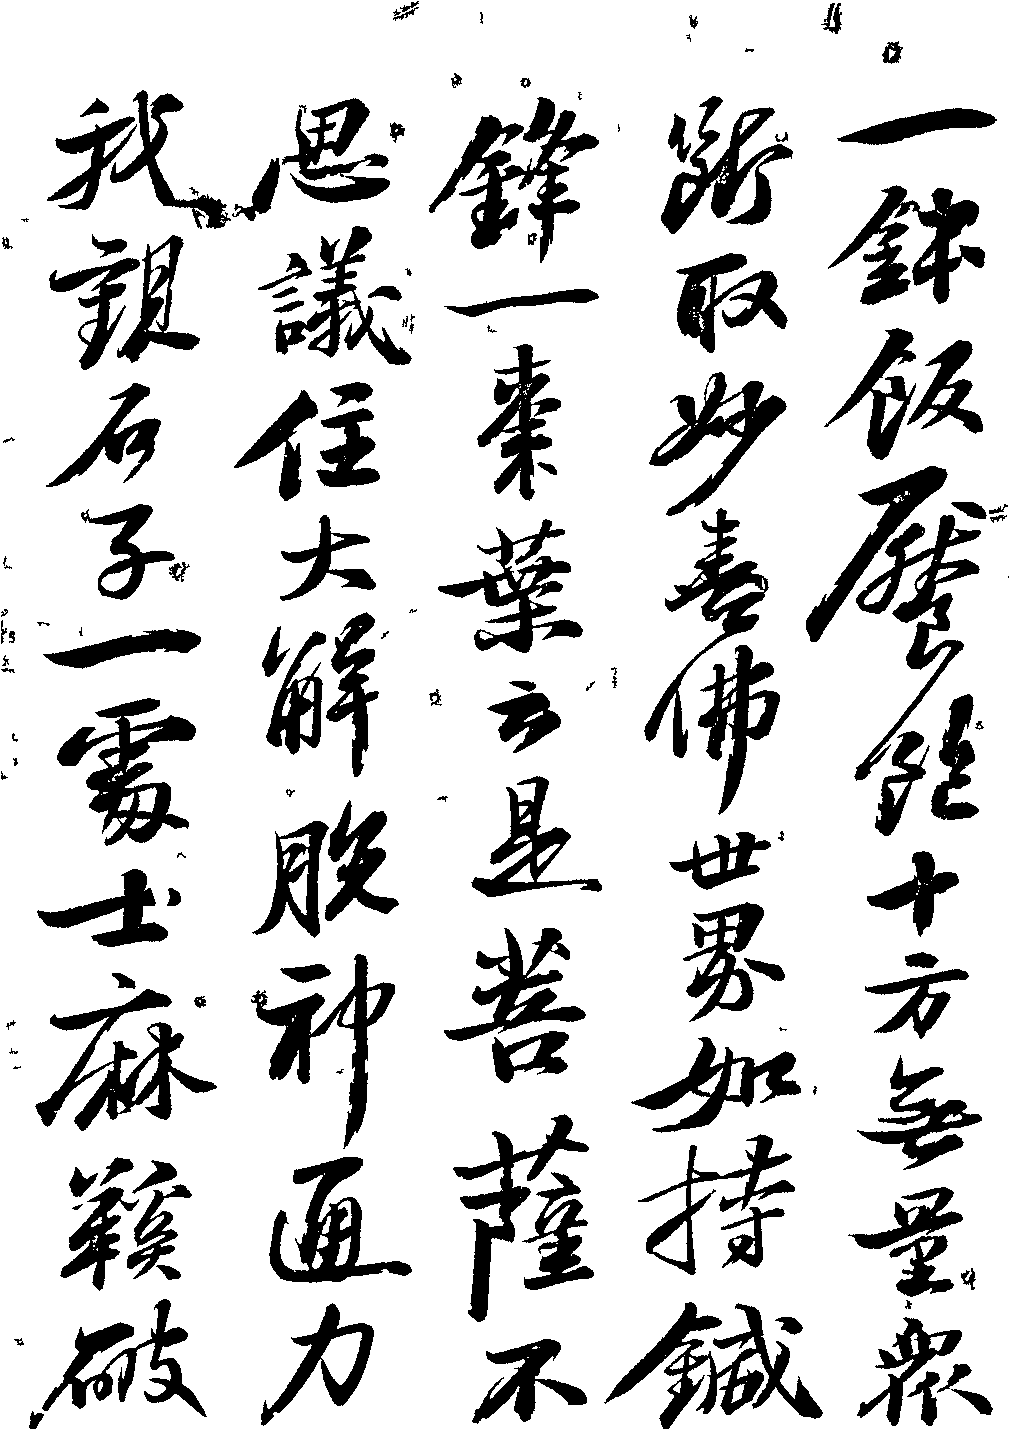 一鉢飯饜飽十方無量眾
斷取妙喜佛世界如持鍼
鋒一棗葉云是菩薩不
思議住大解脫神通力
我觀石子一處士麻鞵破